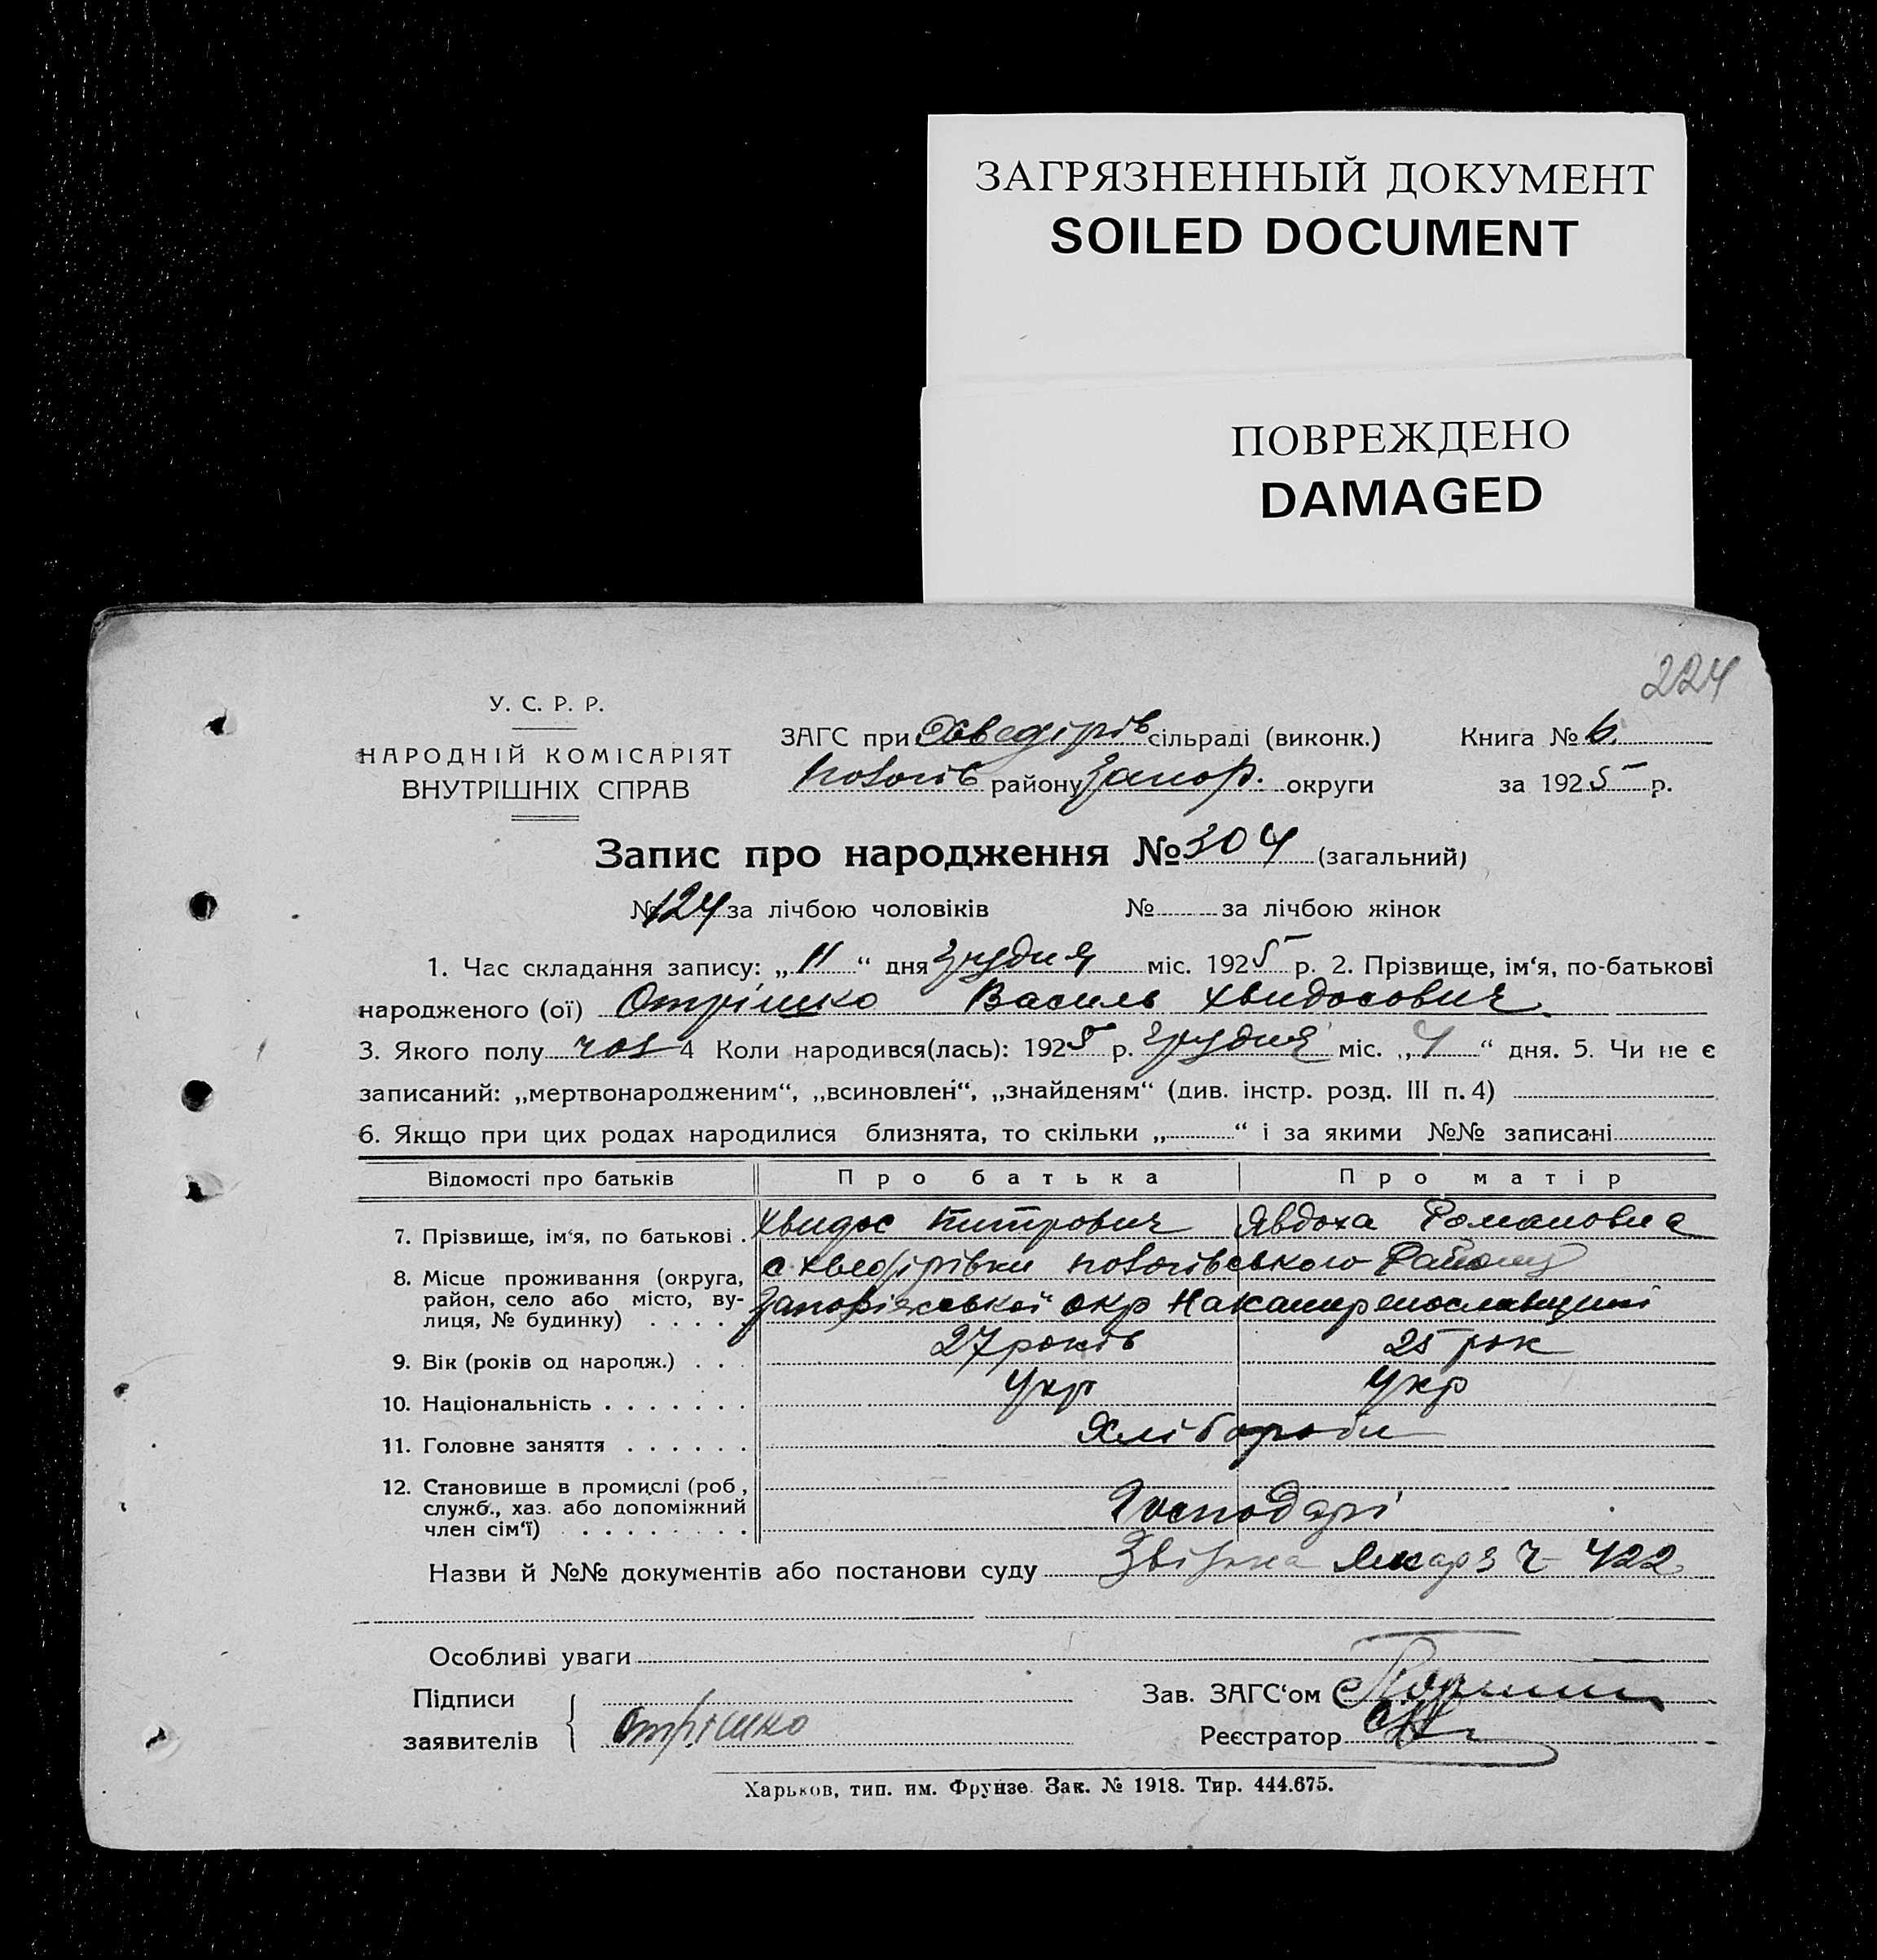 ЗАГРЯЗНЕННЫЙ ДОКУМЕНТ
SOILED DOCUMENT
ПОВРЕЖДЕНО
DAMAGED
224
У. С. Р. Р.
НАРОДНІЙ КОМІСАРІЯТ
ВНУТРІШНІХ СПРАВ
ЗАГС при Хведірів сільраді (виконк.)
району Запор. округи
Книга № 6
за 1925 р.
Запис про народження № 304 (загальний)
№ 124 за лічбою чоловіків № за лічбою жінок
1. Час складання запису: „11“ дня грудня міс. 1925 р. 2. Прізвище, ім‘я, по-батькові
народженого (ої) Отрішко Василь Хвидосович
3. Якого полу чол 4 Коли народився(лась): 1925 р. грудня міс. „4“ дня. 5. Чи не є
записаний: „мертвонародженим“, „всиновлені“, „знайденям“ (див. інстр. розд. III п. 4)
6. Якщо при цих родах народилися близнята, то скільки „ “ і за якими №№ записані
Відомості про батьків Про батька Про матір
7. Прізвище, ім‘я, по батькові . Хвидос Питрович Явдоха Романовна
8. Місце проживання (округа, район, село або місто, ву-лиця, № будинку) . . . . с Хведірівки району
Запоріжської окр
9. Вік (років од народж.) . . . 27 років 25 рок
10. Національність . . . . . . . Укр Укр
11. Головне заняття . . . . . . Хлібороби
12. Становище в промислі (роб, служб., хаз. або допоміжний член сім‘ї) . . . . . . . . Господарі
Назви й №№ документів або постанови суду Звістка Лікаря Ч 422
Особливі уваги
Підписи
заявителів Отрішко
Зав. ЗАГС‘ом
Реєстратор
Харьков, тип. им. Фрунзе. Зак. № 1918. Тир. 444.675.